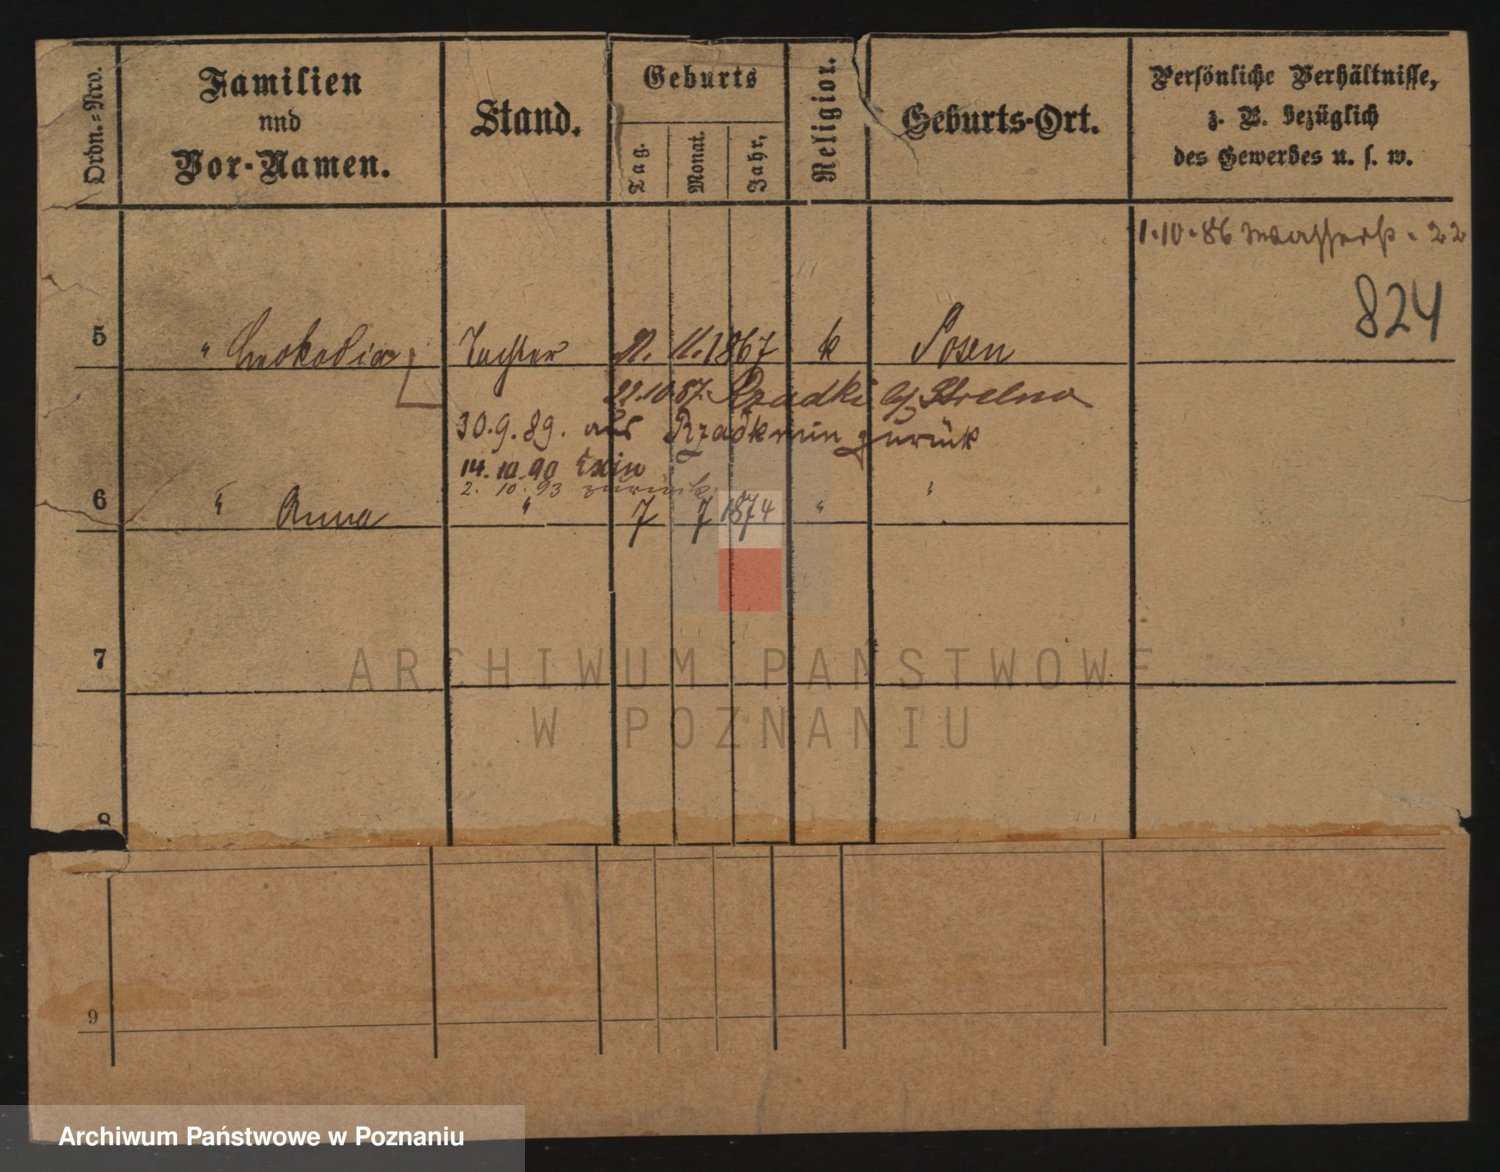 Ordn.=Nro.
Familien
und
Vor-Namen.
Stand.
Geburts
Tag.
Monat.
Jahr,
Religion.
Geburts-Ort.
Persönliche Verhältnisse,
z. B. bezüglich
des Gewerbes u. s. w.
1.10.86 Wasserst. 22
824
5 " Leokadia Tochter 11. 11. 1867 k Posen
22.10.87. Rzadki b/ Strelno
30.9.89. aus Rzadkwin zurück
14.10.90 Exin
2. 10. 93 zurück
6 " Anna " 7 7 1874 " "
7
ARCHIWUM PAŃSTWOWE
W POZNANIU
8
9
Archiwum Państwowe w Poznaniu